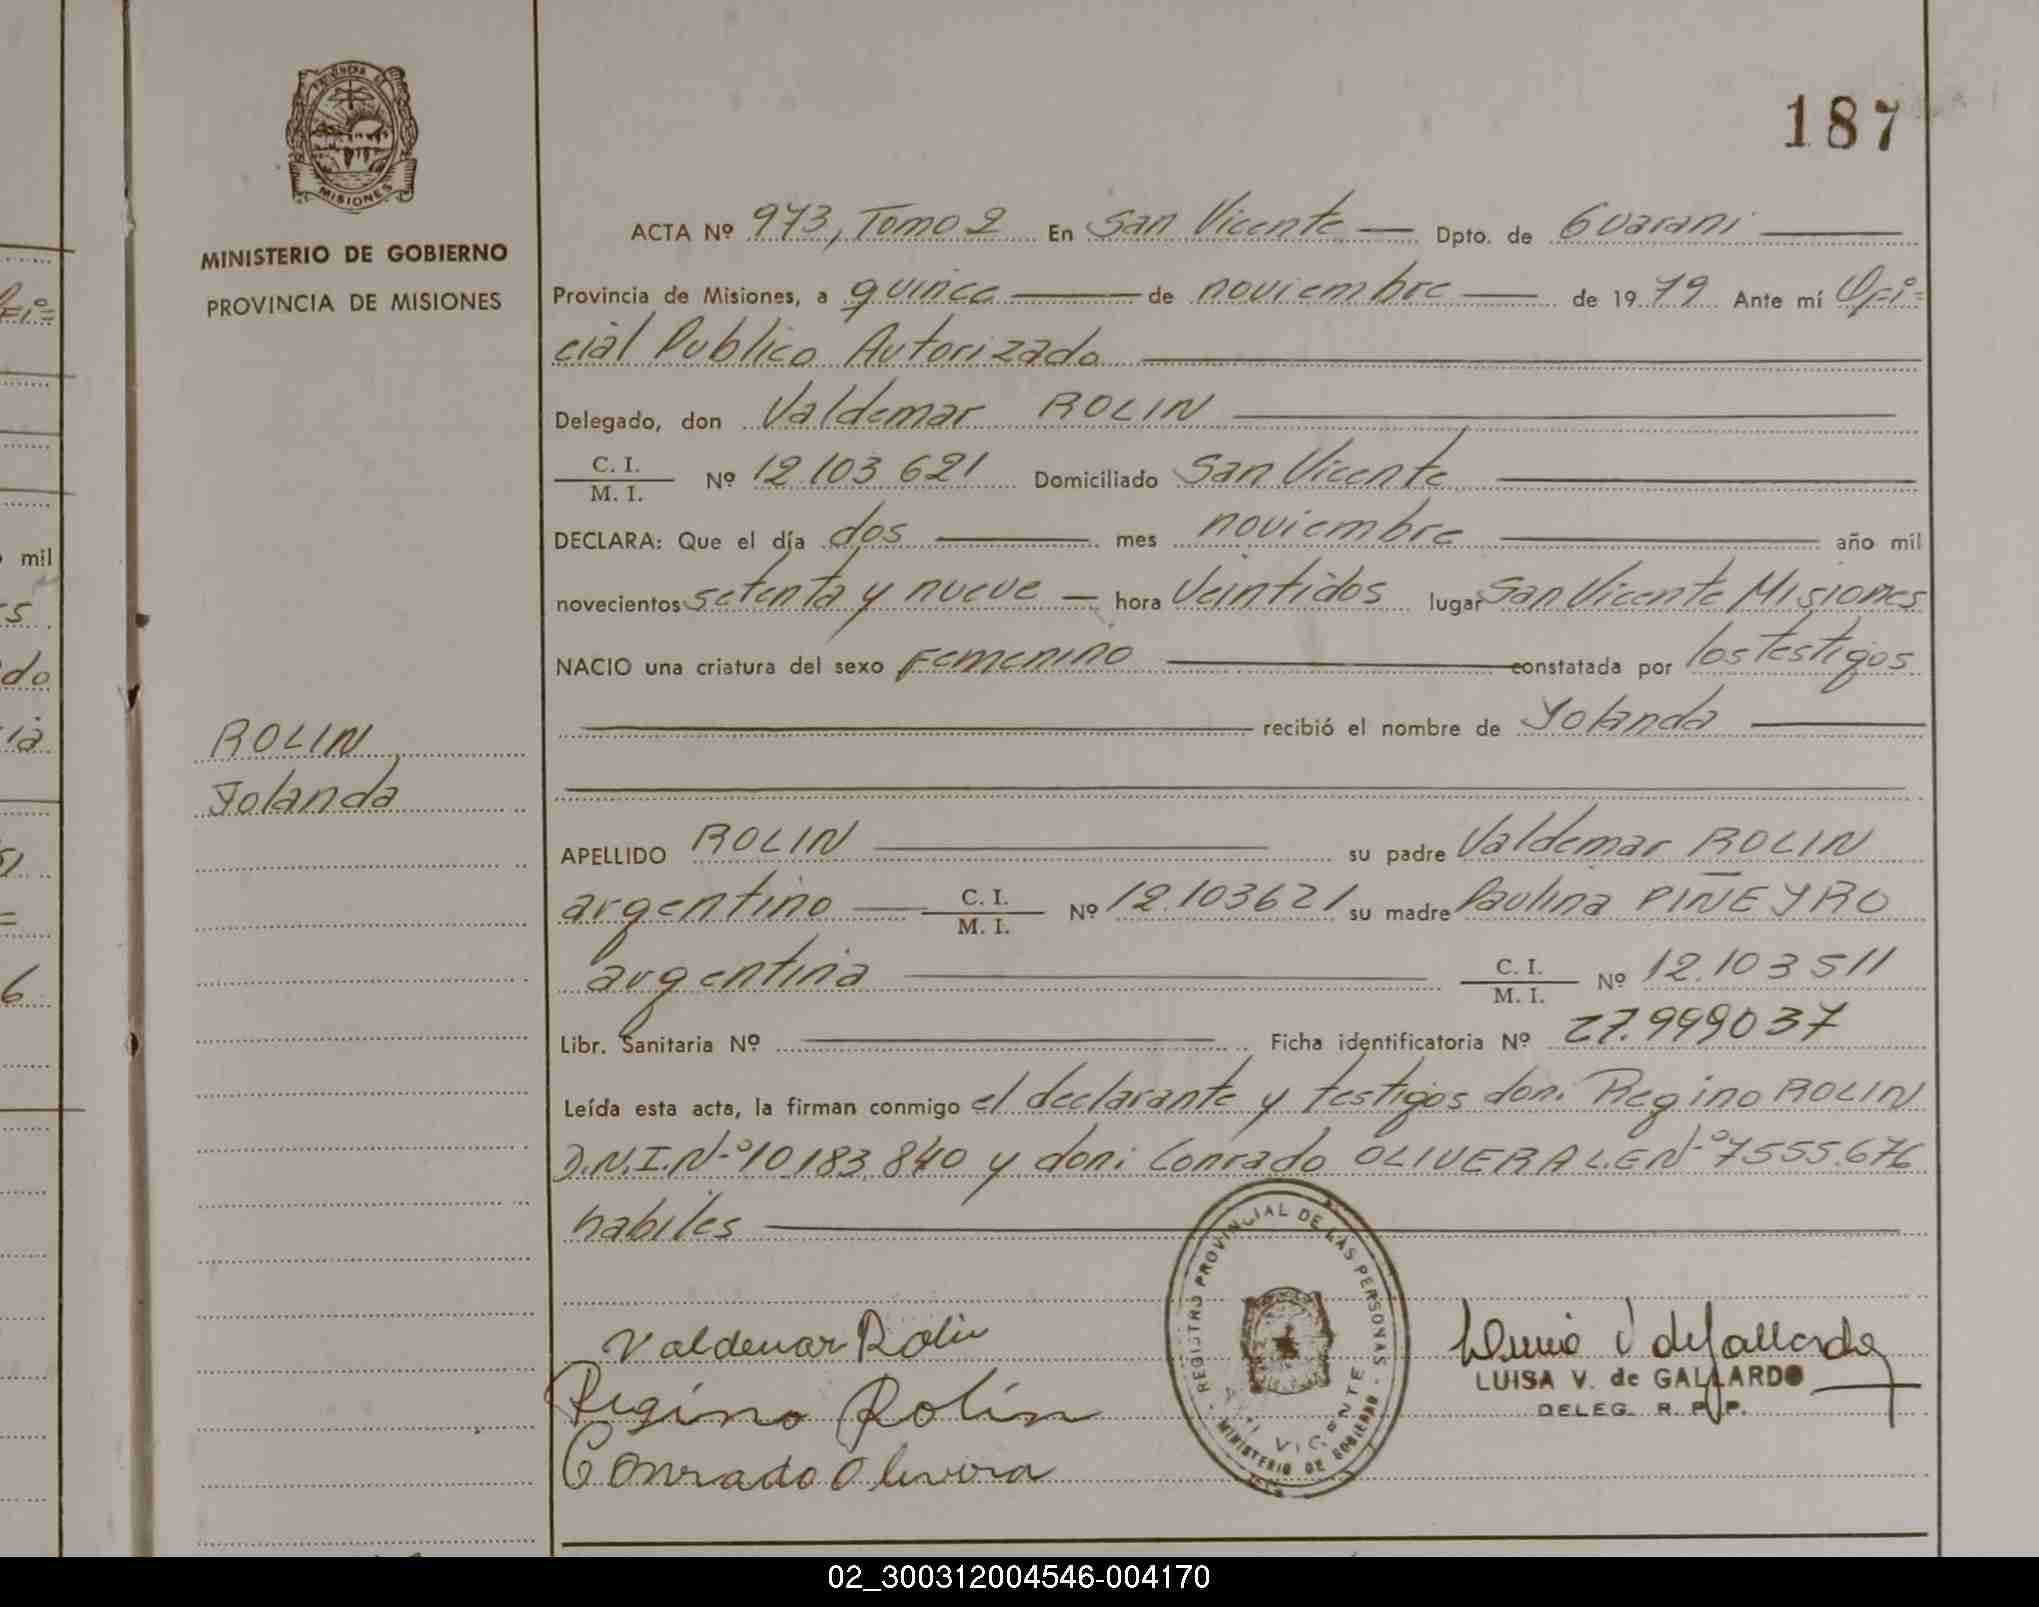 187
PROVINCIA DE
MISIONES
MINISTERIO DE GOBIERNO
PROVINCIA DE MISIONES
ROLIN
Yolanda
ACTA Nº 973, Tomo 2 En San Vicente — Dpto. de Guarani —
Provincia de Misiones, a quince — de noviembre — de 1979 Ante mí Ofi=
cial Publico Autorizado —
Delegado, don Valdemar ROLIN —
C. I.
M. I. Nº 12.103.621 Domiciliado San Vicente —
DECLARA: Que el día dos — mes noviembre — año mil
novecientos setenta y nueve — hora Veintidos lugar San Vicente Misiones
NACIO una criatura del sexo Femenino — constatada por los testigos
— recibió el nombre de Yolanda —
APELLIDO ROLIN — su padre Valdemar ROLIN
argentino — C. I.
M. I. Nº 12.103621 su madre Paulina PIÑEYRO
argentina — C. I.
M. I. Nº 12.103511
Libr. Sanitaria Nº — Ficha identificatoria Nº 27.999037
Leída esta acta, la firman conmigo el declarante y testigos don: Regino ROLIN
D.N.I.Nº 10.183.840 y don: Conrado OLIVERA L.E Nº 7555.676
habiles —
Valdemar Rolin
Regino Rolín
Conrado Olivera
REGISTRO PROVINCIAL DE LAS PERSONAS
SAN VICENTE
MINISTERIO DE GOBIERNO
LUISA V. de GALLARDO
DELEG. R. P. P.
mil
do
6
02_300312004546-004170